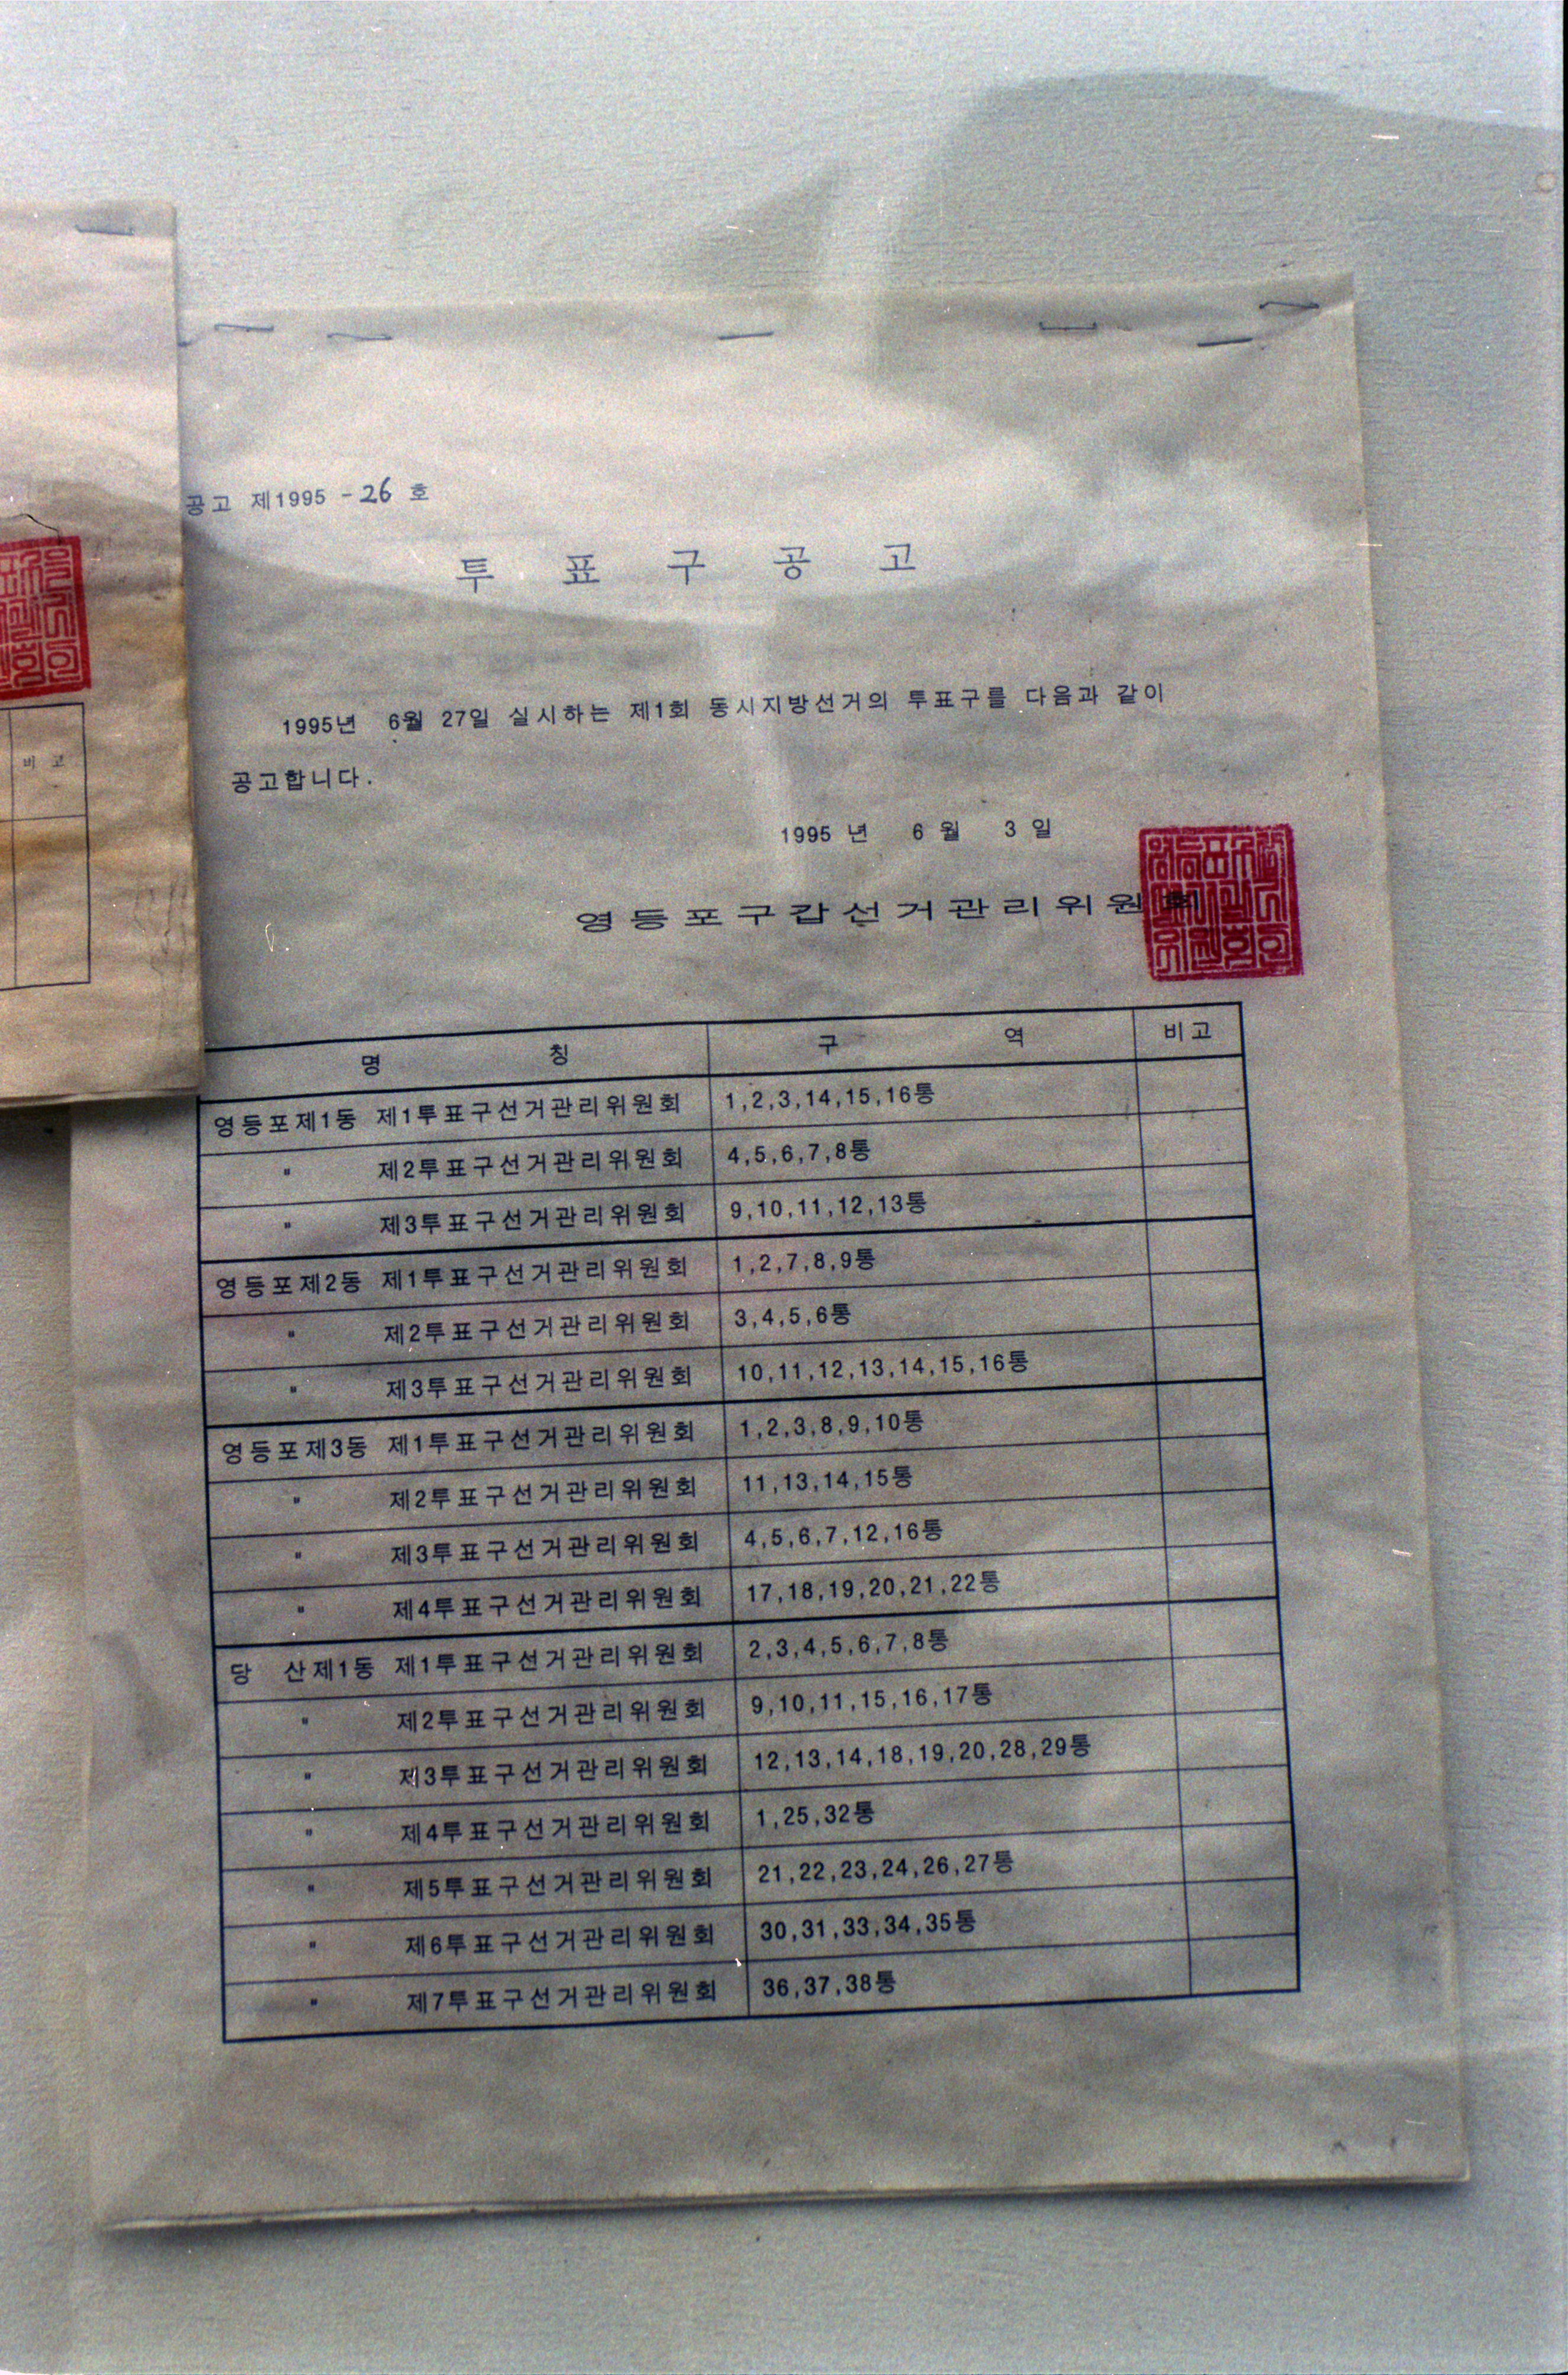 공고 제1995 -26 호
투 표 구 공 고
1995년 6월 27일 실시하는 제1회 동시지방선거의 투표구를 다음과 같이
공고합니다.
1995 년 6 월 3 일
영등포구갑선거관리위원회
비 고
명 칭 구 역 비고
영등포제1동 제1투표구선거관리위원회 1,2,3,14,15,16통
" 제2투표구선거관리위원회 4,5,6,7,8통
" 제3투표구선거관리위원회 9,10,11,12,13통
영등포제2동 제1투표구선거관리위원회 1,2,7,8,9통
" 제2투표구선거관리위원회 3,4,5,6통
" 제3투표구선거관리위원회 10,11,12,13,14,15,16통
영등포제3동 제1투표구선거관리위원회 1,2,3,8,9,10통
" 제2투표구선거관리위원회 11,13,14,15통
" 제3투표구선거관리위원회 4,5,6,7,12,16통
" 제4투표구선거관리위원회 17,18,19,20,21,22통
당 산제1동 제1투표구선거관리위원회 2,3,4,5,6,7,8통
" 제2투표구선거관리위원회 9,10,11,15,16,17통
" 제3투표구선거관리위원회 12,13,14,18,19,20,28,29통
" 제4투표구선거관리위원회 1,25,32통
" 제5투표구선거관리위원회 21,22,23,24,26,27통
" 제6투표구선거관리위원회 30,31,33,34,35통
" 제7투표구선거관리위원회 36,37,38통